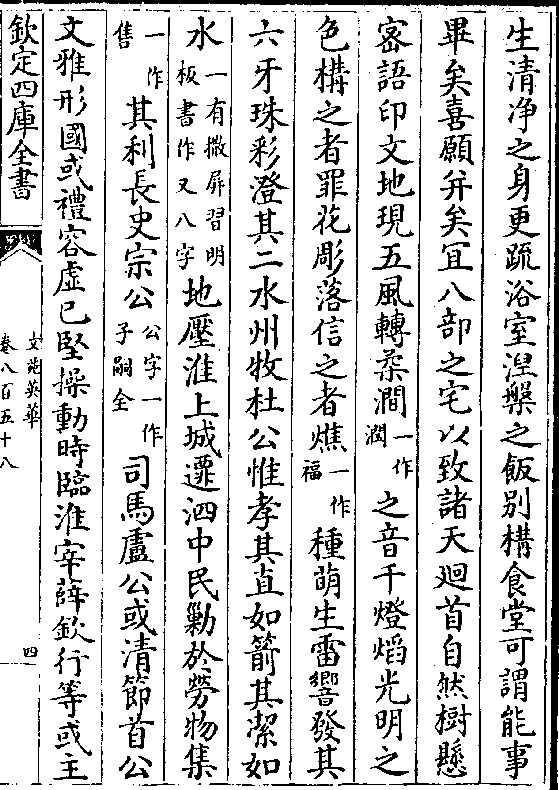 生清净之身更疏浴室涅槃之飯别構食堂可謂能事
畢矣喜願并矣宜八部之宅以致諸天廻首自然樹懸
宻語印文地現五風轉柔澗一作潤之音千燈熖光明之
色構之者罪花彫落信之者燋一作福種萌生雷響發其
六牙珠彩澄其二水州牧杜公惟孝其直如箭其潔如
水一有撒屏習明板書作又八字地壓淮上城遷泗中民勦於勞物集
一作售其利長史宗公公字一作子嗣全司馬盧公或清節首公
文雅形國或禮容虚已堅操動時臨淮宰薛欽行等或主
欽定四庫全書
文苑英華
卷八百五十八
四